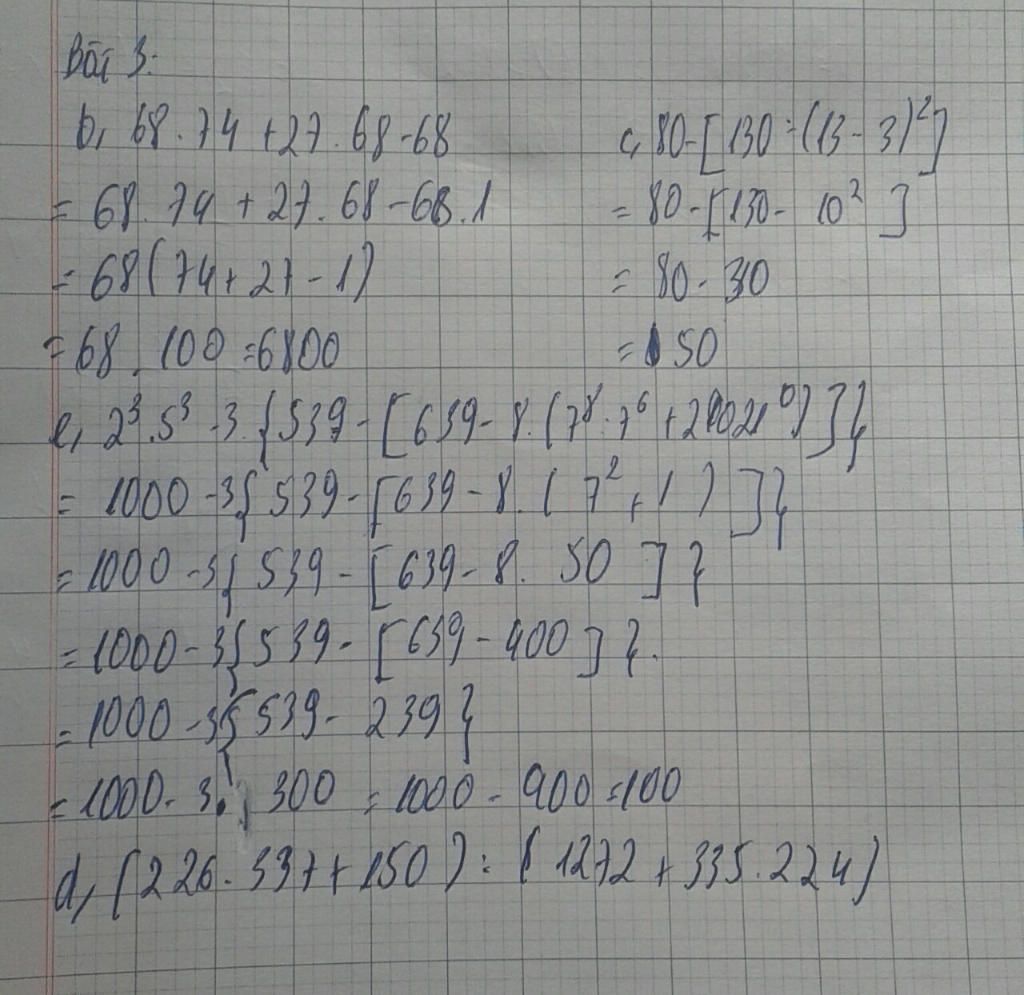 Bài 3:
b, 68.74+27.68-68
= 68.74+27.68-68.1
= 68(74+27-1)
= 68.100=6800
c, 80-[130-(13-3)²]
= 80-[130-10²]
= 80-30
= 50
e, 2³.5³-3.{539-[639-8.(7⁸:7⁶+2021⁰)]}
= 1000-3{539-[639-8.(7²+1)]}
= 1000-3{539-[639-8.50]}
= 1000-3{539-[639-400]}.
= 1000-3{539-239}
= 1000-3.300=1000-900=100
d, (226.337+150):(1272+335.224)